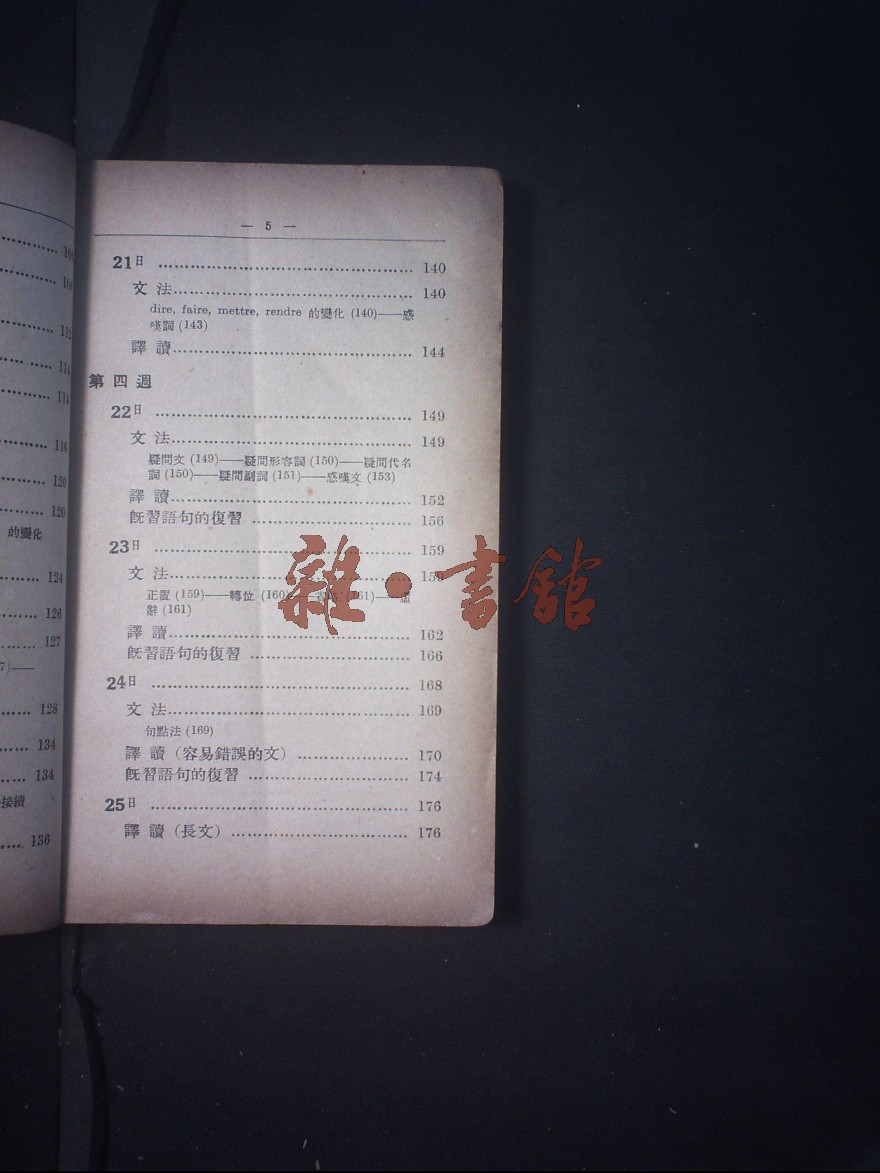 — 5 —
21日 …… 140
文 法 …… 140
dire, faire, mettre, rendre 的變化 (140)——感
嘆詞 (143)
譯 讀 …… 144
第 四 週
22日 …… 149
文 法 …… 149
疑問文 (149)——疑問形容詞 (150)——疑問代名
詞 (150)——疑問副詞 (151)——感嘆文 (153)
譯 讀 …… 152
旣習語句的復習 …… 156
23日 …… 159
文 法 …… 159
正置 (159)——轉位 (160) (161)——虛
辭 (161)
譯 讀 …… 162
旣習語句的復習 …… 166
24日 …… 168
文 法 …… 169
句點法 (169)
譯 讀 (容易錯誤的文) …… 170
旣習語句的復習 …… 174
25日 …… 176
譯 讀 (長文) …… 176
雜·書館
112
114
114
116
120
120
的變化
124
126
127
7)——
128
134
134
接續
136